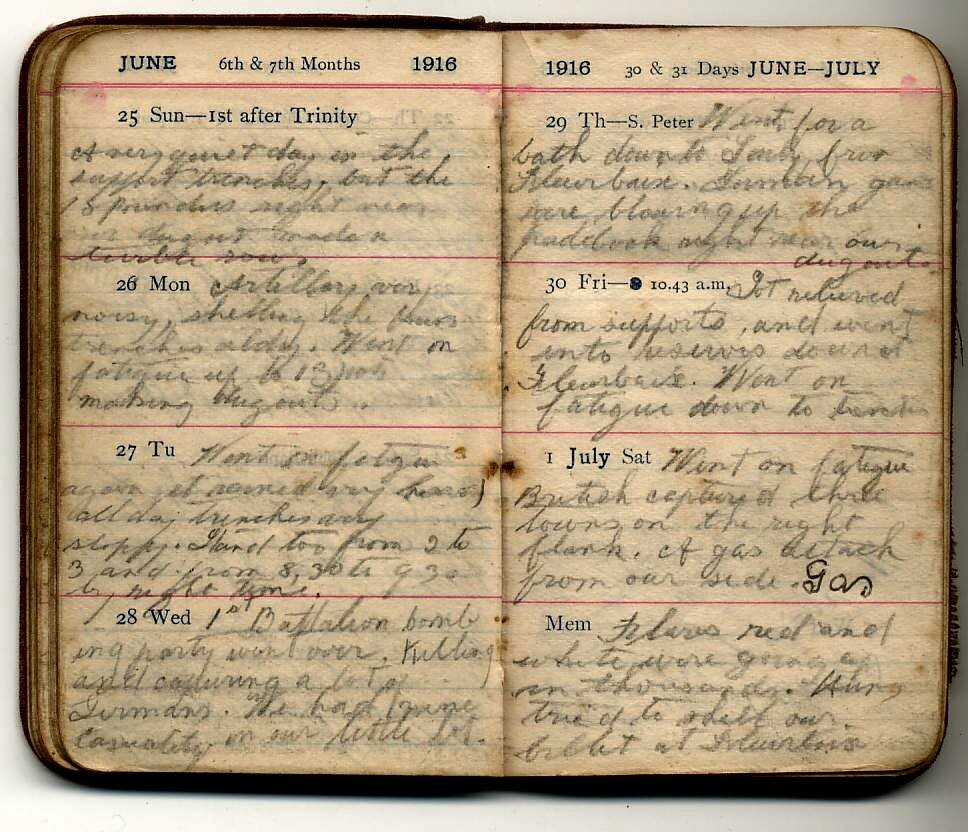 JUNE 6th & 7th Months 1916
25 Sun—1st after Trinity
A very quiet day in the
support trenches, but the
18 pounders right near
our dugout made a
terrible row.
26 Mon Artillery very
noisy, shelling the
trenches all day. Went on
fatigue up to
making dugouts.
27 Tu Went on fatigue
again it rained very heavy
all day trenches very
sloppy. Stand too from 2 to
3 and from 8,30 to 9 30
by night time.
28 Wed 1st Battalion bomb
ing party went over, Killing
and capturing a lot of
Germans. We had
casuality in our little lot.
1916 30 & 31 Days JUNE—JULY
29 Th—S. Peter Went for a
bath down to from
Fleurbaix. German guns
are blowing up the
paddock right near our
dugouts.
30 Fri— 10.43 a.m. Got relieved
from supports, and went
into reserves down at
Fleurbaix. Went on
fatigue down to
1 July Sat Went on fatigue
British captured three
towns on the right
flank. A gas attack
from our side. Gas
Mem Flares red and
white were going up
in thousands. Huns
tried to shell our
billet at Fleurbaix